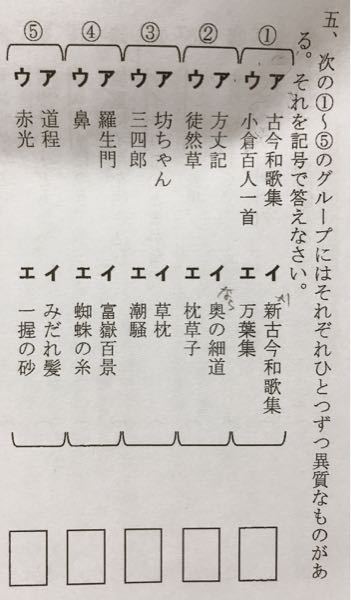 五、次の①〜⑤のグループにはそれぞれひとつずつ異質なものがあ
る。それを記号で答えなさい。
① ア 古今和歌集 イ 新古今和歌集
ウ 小倉百人一首 エ 万葉集
② ア 方丈記 イ 奥の細道
ウ 徒然草 エ 枕草子
③ ア 坊ちゃん イ 草枕
ウ 三四郎 エ 潮騒
④ ア 羅生門 イ 富嶽百景
ウ 鼻 エ 蜘蛛の糸
⑤ ア 道程 イ みだれ髪
ウ 赤光 エ 一握の砂